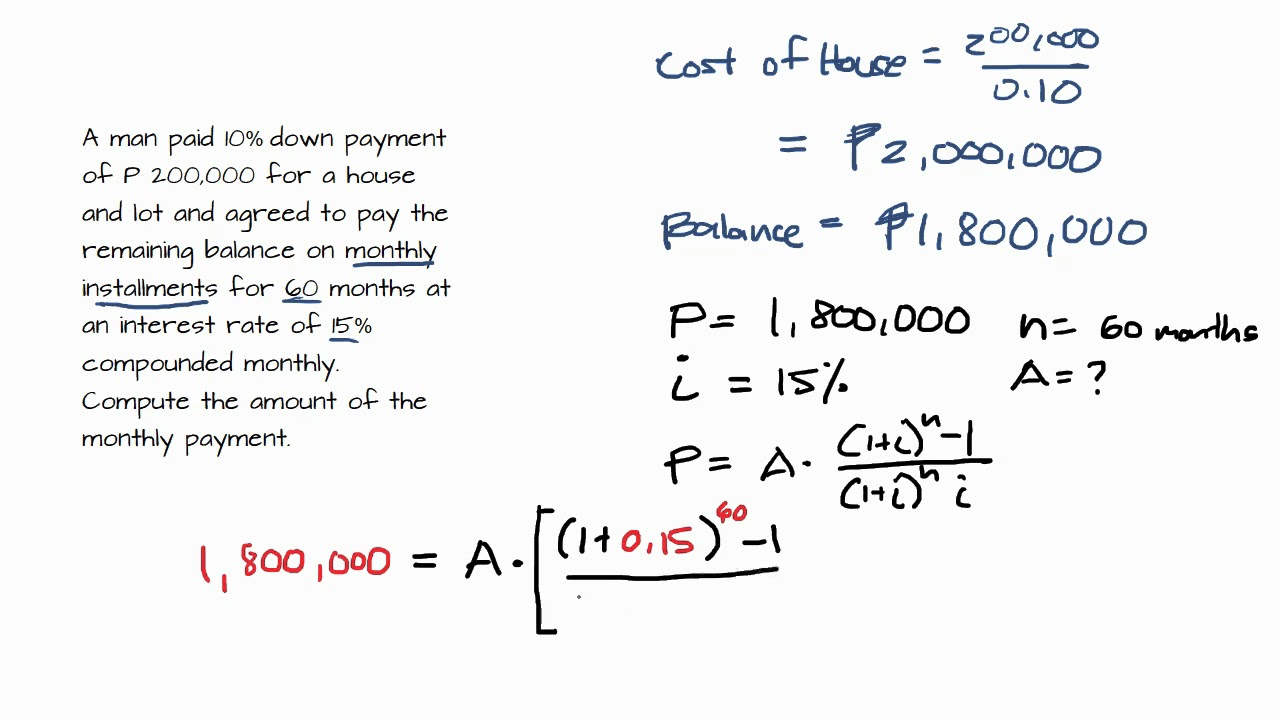 A man paid 10% down payment
of P 200,000 for a house
and lot and agreed to pay the
remaining balance on monthly
installments for 60 months at
an interest rate of 15%
compounded monthly.
Compute the amount of the
monthly payment.
Cost of House = 200,000 / 0.10
= ₱2,000,000
Balance = ₱1,800,000
P = 1,800,000 n = 60 months
i = 15% A = ?
P = A · (1+i)^n - 1 / (1+i)^n i
1,800,000 = A · [ (1 + 0.15)^60 - 1